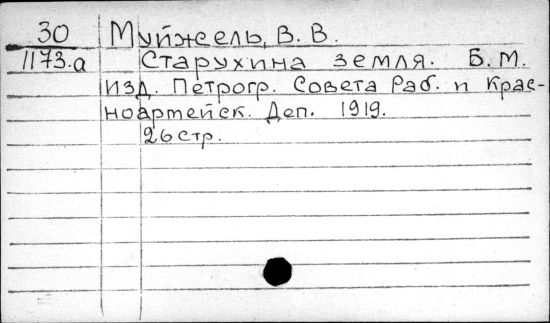 30 Муйжель, В. В.
1173.а Старухина земля. Б. М.
изд. Петрогр. Совета Раб. и Крас-
ноартейск. Деп. 1919.
26 стр.